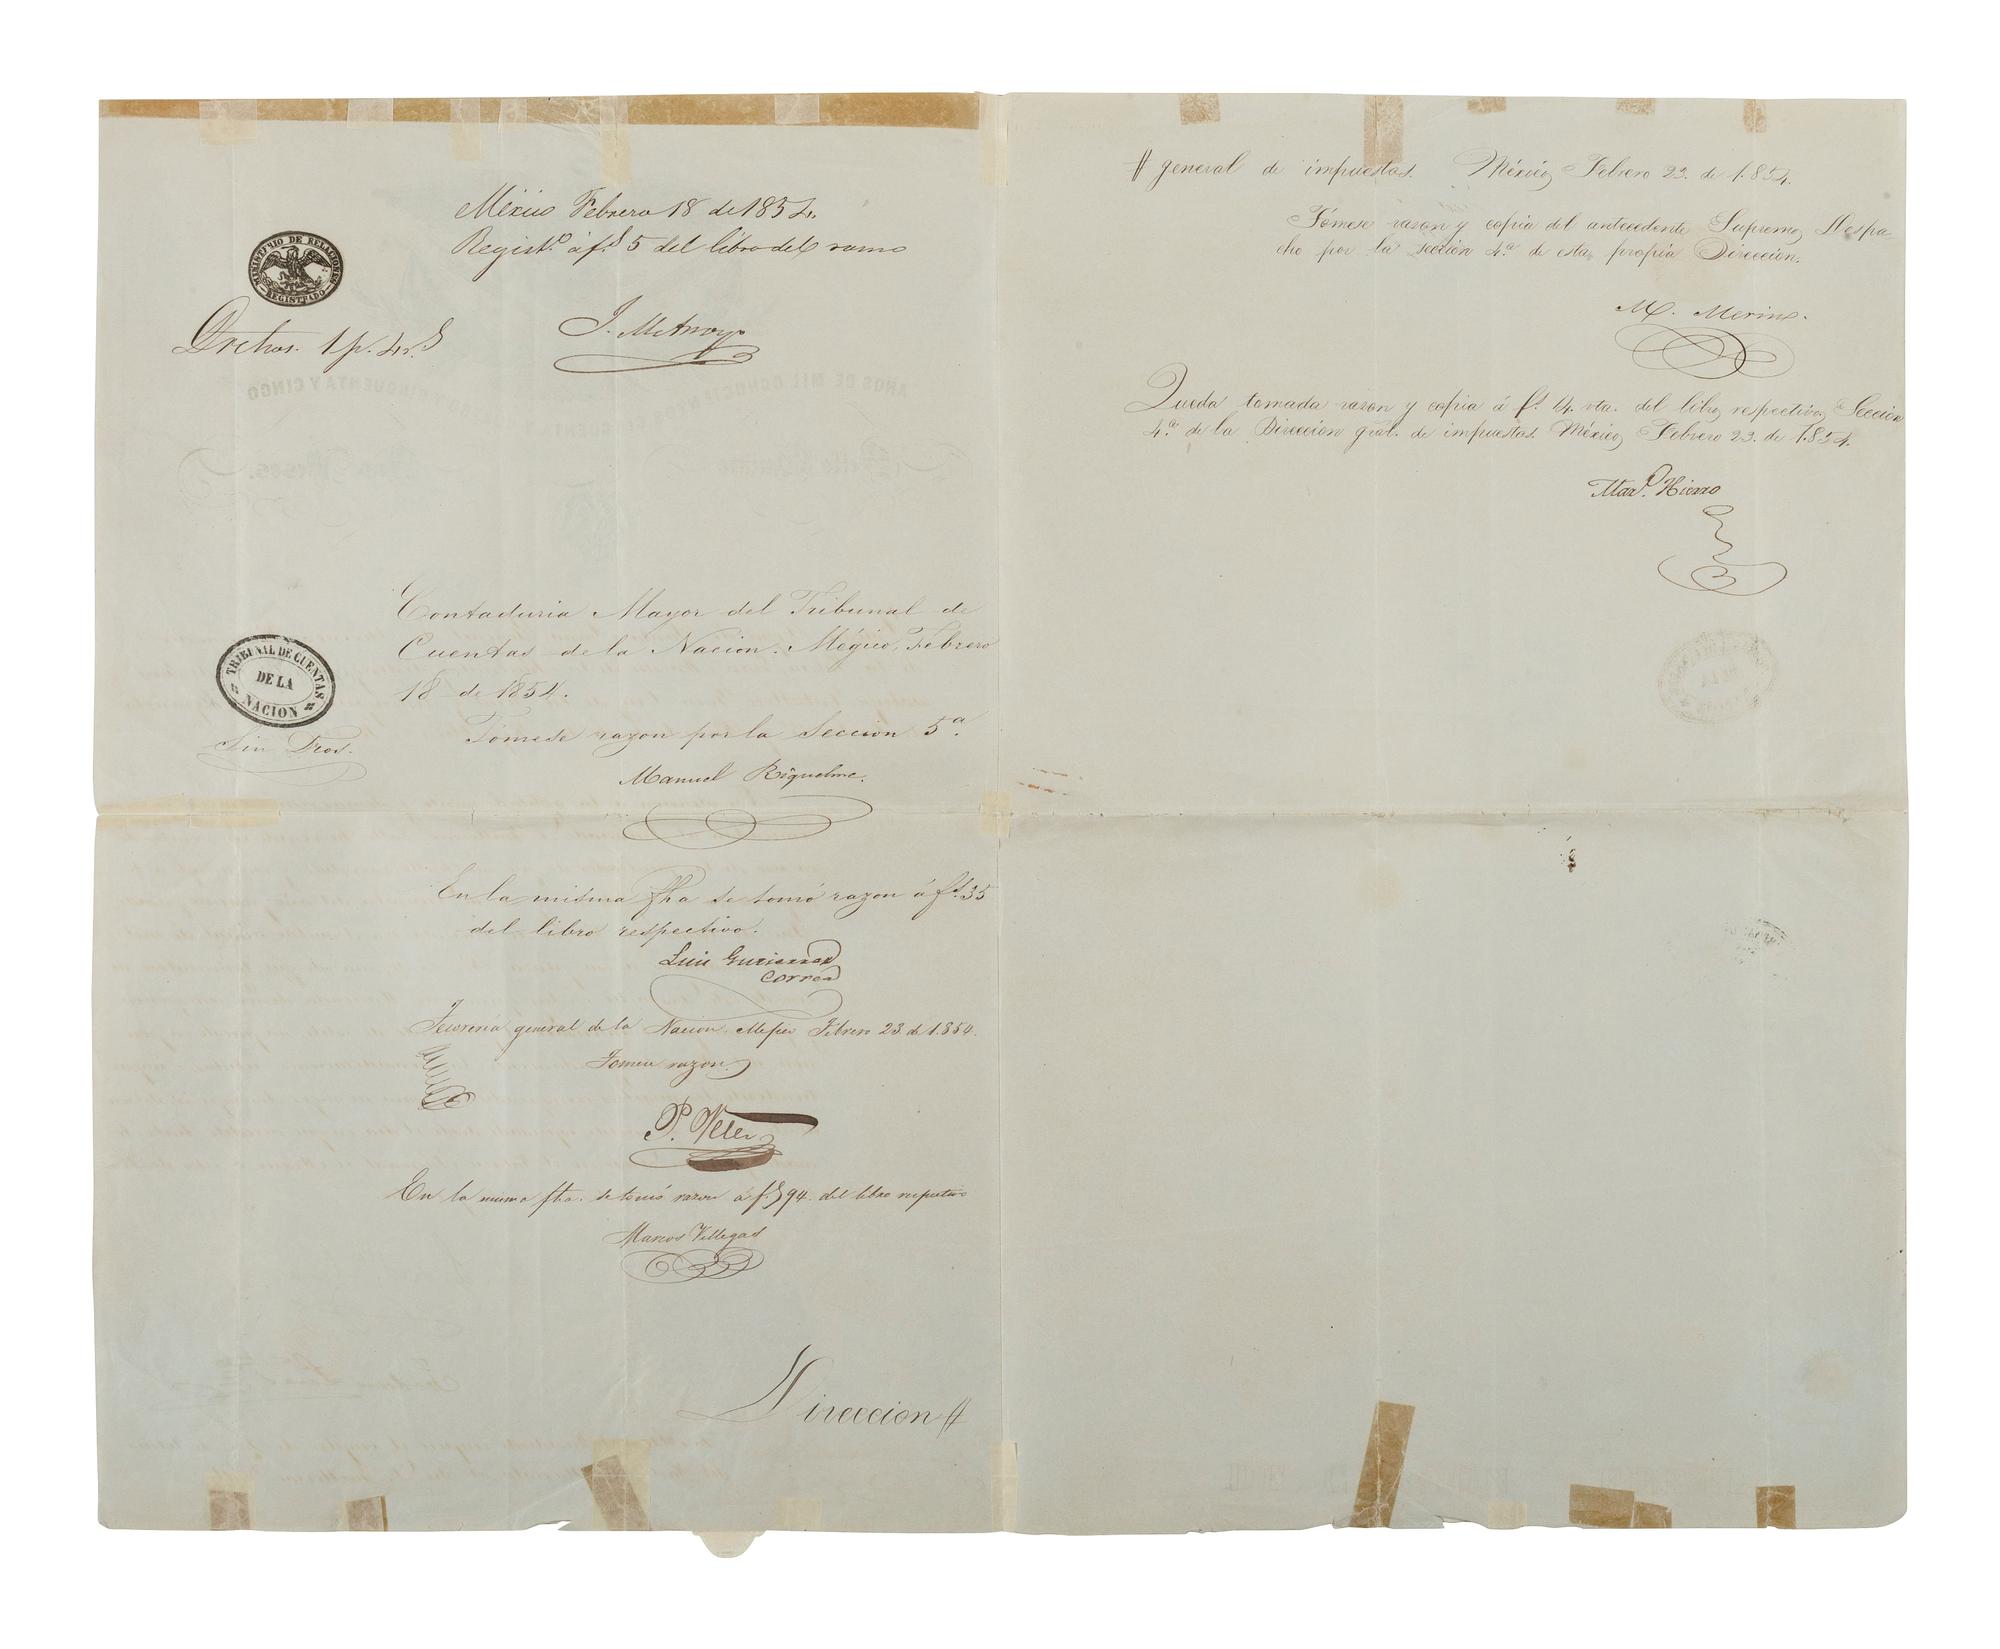 México Febrero 18 de 1854.
Registdo á fs 5 del libro del ramo
MINISTERIO DE RELACIONES
REGISTRADO
Drechos. 1 p. 4 rs
J. M Arroyo
Contaduria Mayor del Tribunal de
Cuentas de la Nacion. Mégico, Febrero
18 de 1854.
TRIBUNAL DE CUENTAS
DE LA
NACION
Sin Dros.
Tómese razon por la Seccion 5a.
Manuel Riquelme.
En la misma fha se tomó razon á fs. 35
del libro respectivo.
Luis Gutierrez
Correa
Tesorería general de la Nacion. Mejico Febrero 23 de 1854.
Tomese razon
P. Velez
En la misma fha. se tomó razon á fs 94. del libro respectivo
Marcos Villegas
Direccion #
# general de impuestos. México, Febrero 23. de 1.854.
Tómese razon y copia del antecedente Supremo, Despa
cho por la seccion 4.a de esta propia Direccion.
M. Merino.
Queda tomada razon y copia á fs. 14. vta. del libro respectivo, Seccion
4.a de la Direccion gral. de impuestos. México, Febrero 23. de 1.854.
Mar.o Hierro
AÑOS DE MIL OCHOCIENTOS CINCUENTA Y CINCO